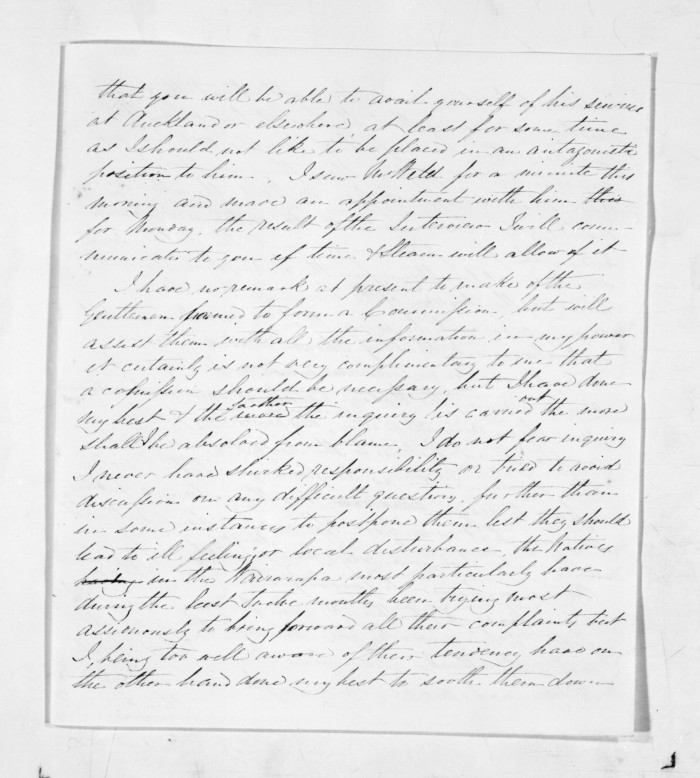 that you will be able to avail yourself of his services
at Auckland or elsewhere, at least for some time
as I should not like to be placed in an antagonistic
position to him. I saw Mr Weld for a minute this
morning and made an appointment with him this
for Monday, the result of the Interview I will com-
municate to you if time & Steam will allow of it
I have no remark at present to make of the
Gentlemen named to form a Commission, but will
assist them with all the information in my power
it certainly is not very complimentary to me that
a comission should be necessary, but I have done
my best & the more farther the inquiry is carried out the more
shall I be absolved from blame, I do not fear inquiry
I never have shirked responsibility or tried to avoid
discussion on any difficult question, further than
in some instances to postpone them lest they should
lead to ill feeling or local disturbance, the Natives
having in the Wairarapa most particularly have
during the last twelve months been trying most
assiduously to bring forward all their complaints, but
I, being too well aware of their tendency have on
the other hand done my best to sooth them down